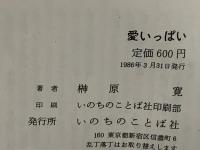 愛いっぱい
定価600円
1986年3月31日発行
著者 榊原 寛
印刷 いのちのことば社印刷部
発行所 いのちのことば社
160 東京都新宿区信濃町6
乱丁落丁はお取り替えします